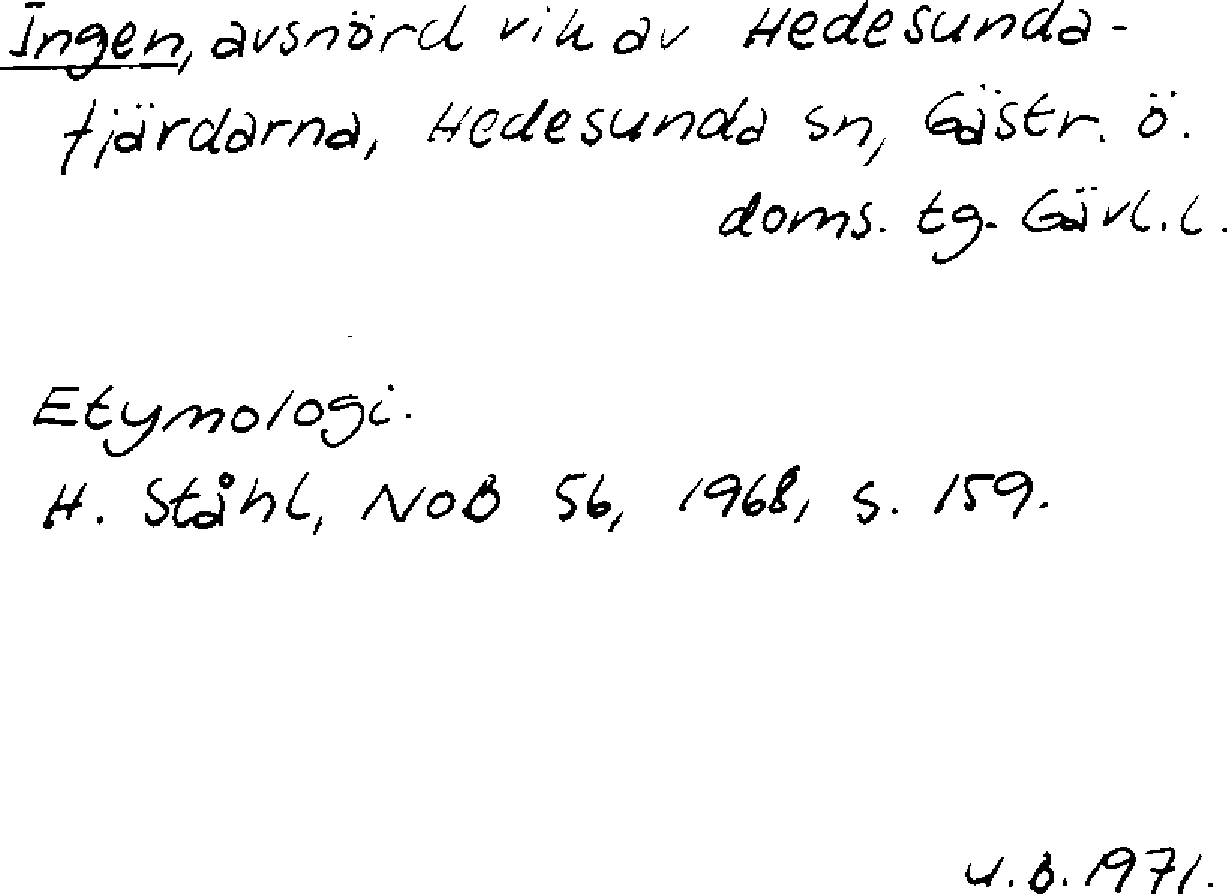 Ingen, avsnörd vik av Hedesunda-
fjärdarna, Hedesunda sn, Gästr. ö.
doms. tg. Gävl. l.
Etymologi.
H. Ståhl, NoB 56, 1968, s. 159.
U.B. 1971.